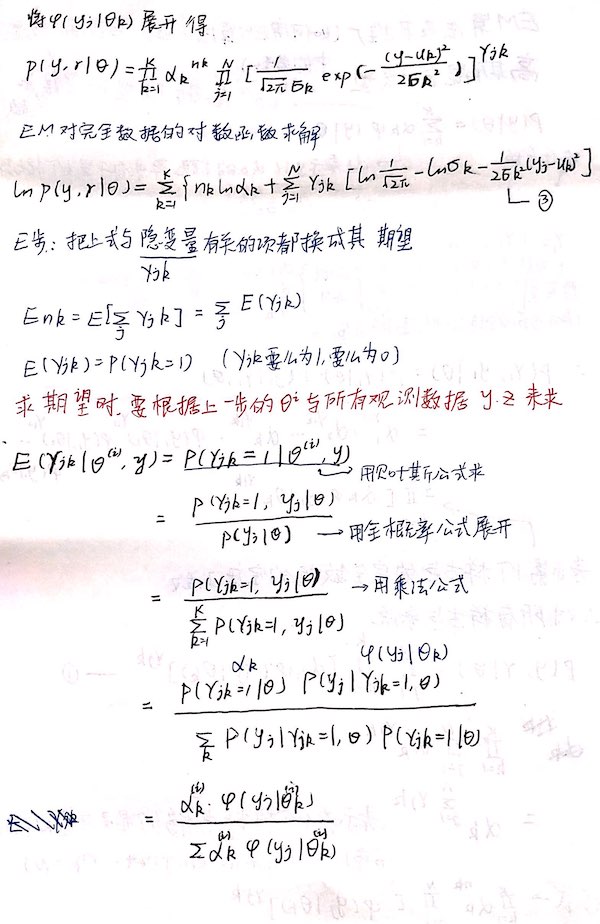 将φ(yj|θk)展开得
P(y,r|θ) = ∏_{k=1}^{K} αk^{nk} ∏_{j=1}^{N} [1/(√2π σk) exp(-(y-uk)²/2σk²)]^{γjk}
EM对完全数据的对数函数求解
ln P(y,r|θ) = Σ_{k=1}^{K} {nk ln αk + Σ_{j=1}^{N} γjk [ln 1/√2π - ln σk - 1/2σk² (yj-uk)²]
③
E步：把上式与隐变量有关的项都换成其期望
γjk
E nk = E[Σ_j γjk] = Σ_j E(γjk)
E(γjk) = P(γjk=1) (γjk要么为1,要么为0)
求期望时,要根据上一步的θⁱ与所有观测数据 y.z 来求
E(γjk|θ^{(i)}, y) = P(γjk=1|θ^{(i)}, y)
用贝叶斯公式求
= P(γjk=1, yj|θ) / P(yj|θ) → 用全概率公式展开
= P(γjk=1, yj|θ) / Σ_{k=1}^{K} P(γjk=1, yj|θ) → 用乘法公式
αk φ(yj|θk)
= P(γjk=1|θ) P(yj|γjk=1, θ) / Σ_k P(yj|γjk=1, θ) P(γjk=1|θ)
= αk^{(i)} · φ(yj|θk^{(i)}) / Σ αk^{(i)} φ(yj|θk^{(i)})